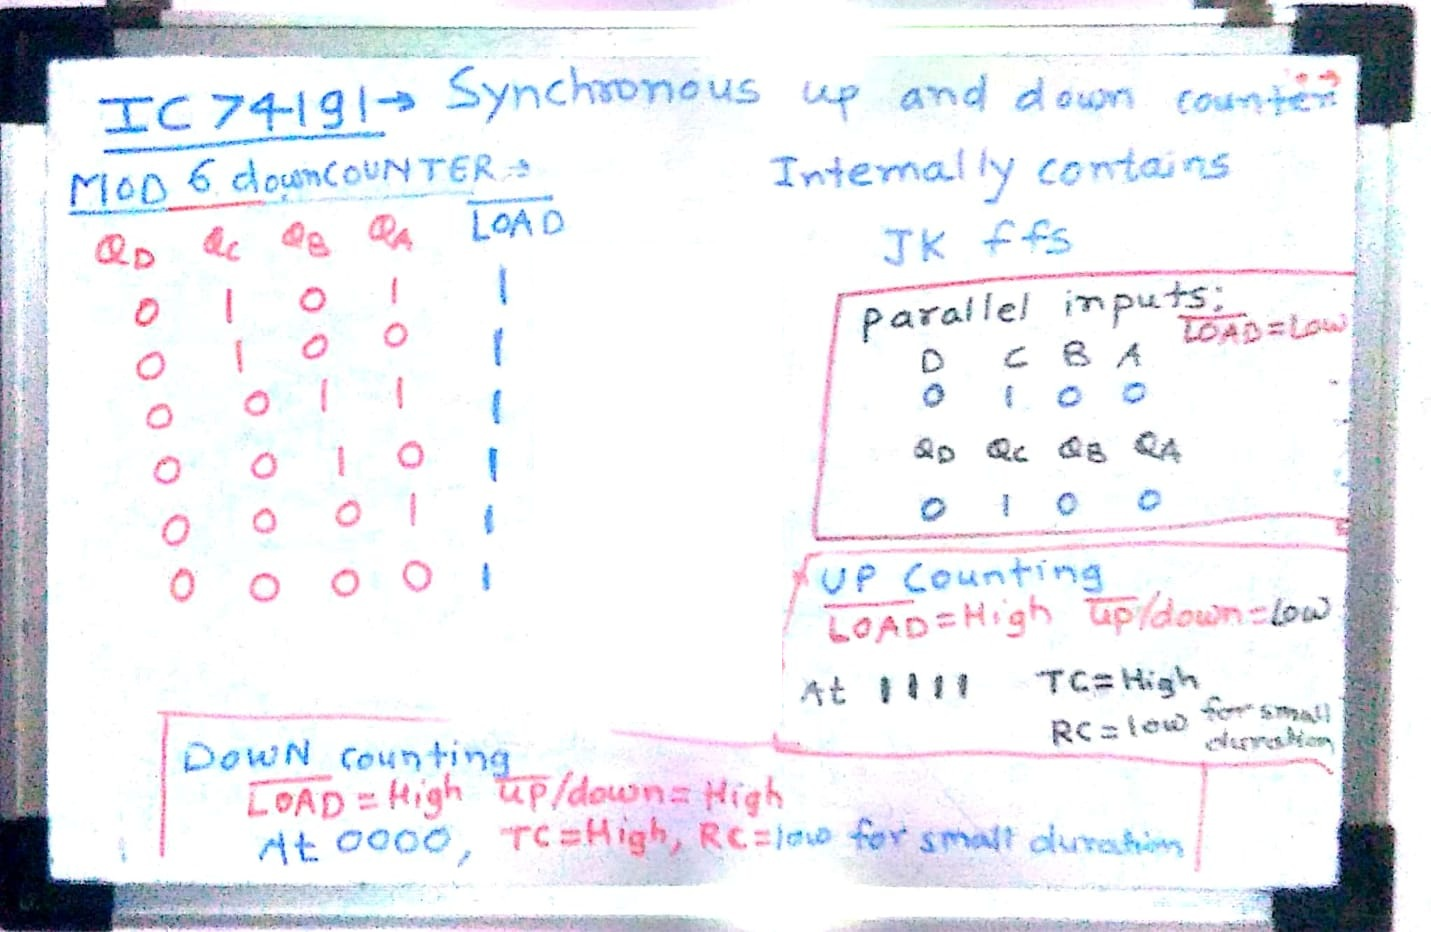 IC 74191→ Synchronous up and down counter
MOD 6 downCOUNTER→
Internally contains
JK ffs
QD QC QB QA LOAD
0 1 0 1 1
0 1 0 0 1
0 0 1 1 1
0 0 1 0 1
0 0 0 1 1
0 0 0 0 1
parallel inputs:
LOAD=Low
D C B A
0 1 0 0
QD QC QB QA
0 1 0 0
UP Counting
LOAD=High up/down=Low
At 1111 TC=High
RC=low for small duration
DOWN Counting
LOAD=High up/down=High
At 0000, TC=High, RC=low for small duration